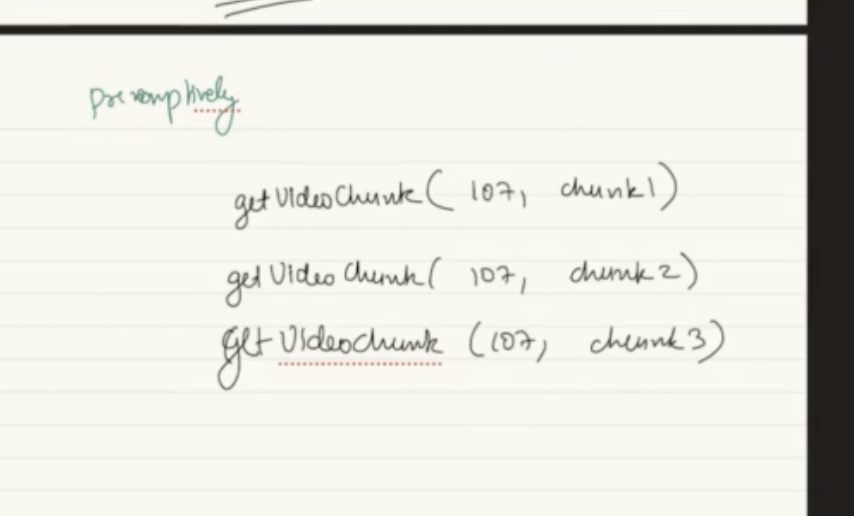 preemptively
getVideoChunk( 107, chunk1)
getVideoChunk( 107, chunk2)
getVideochunk (107, chunk3)